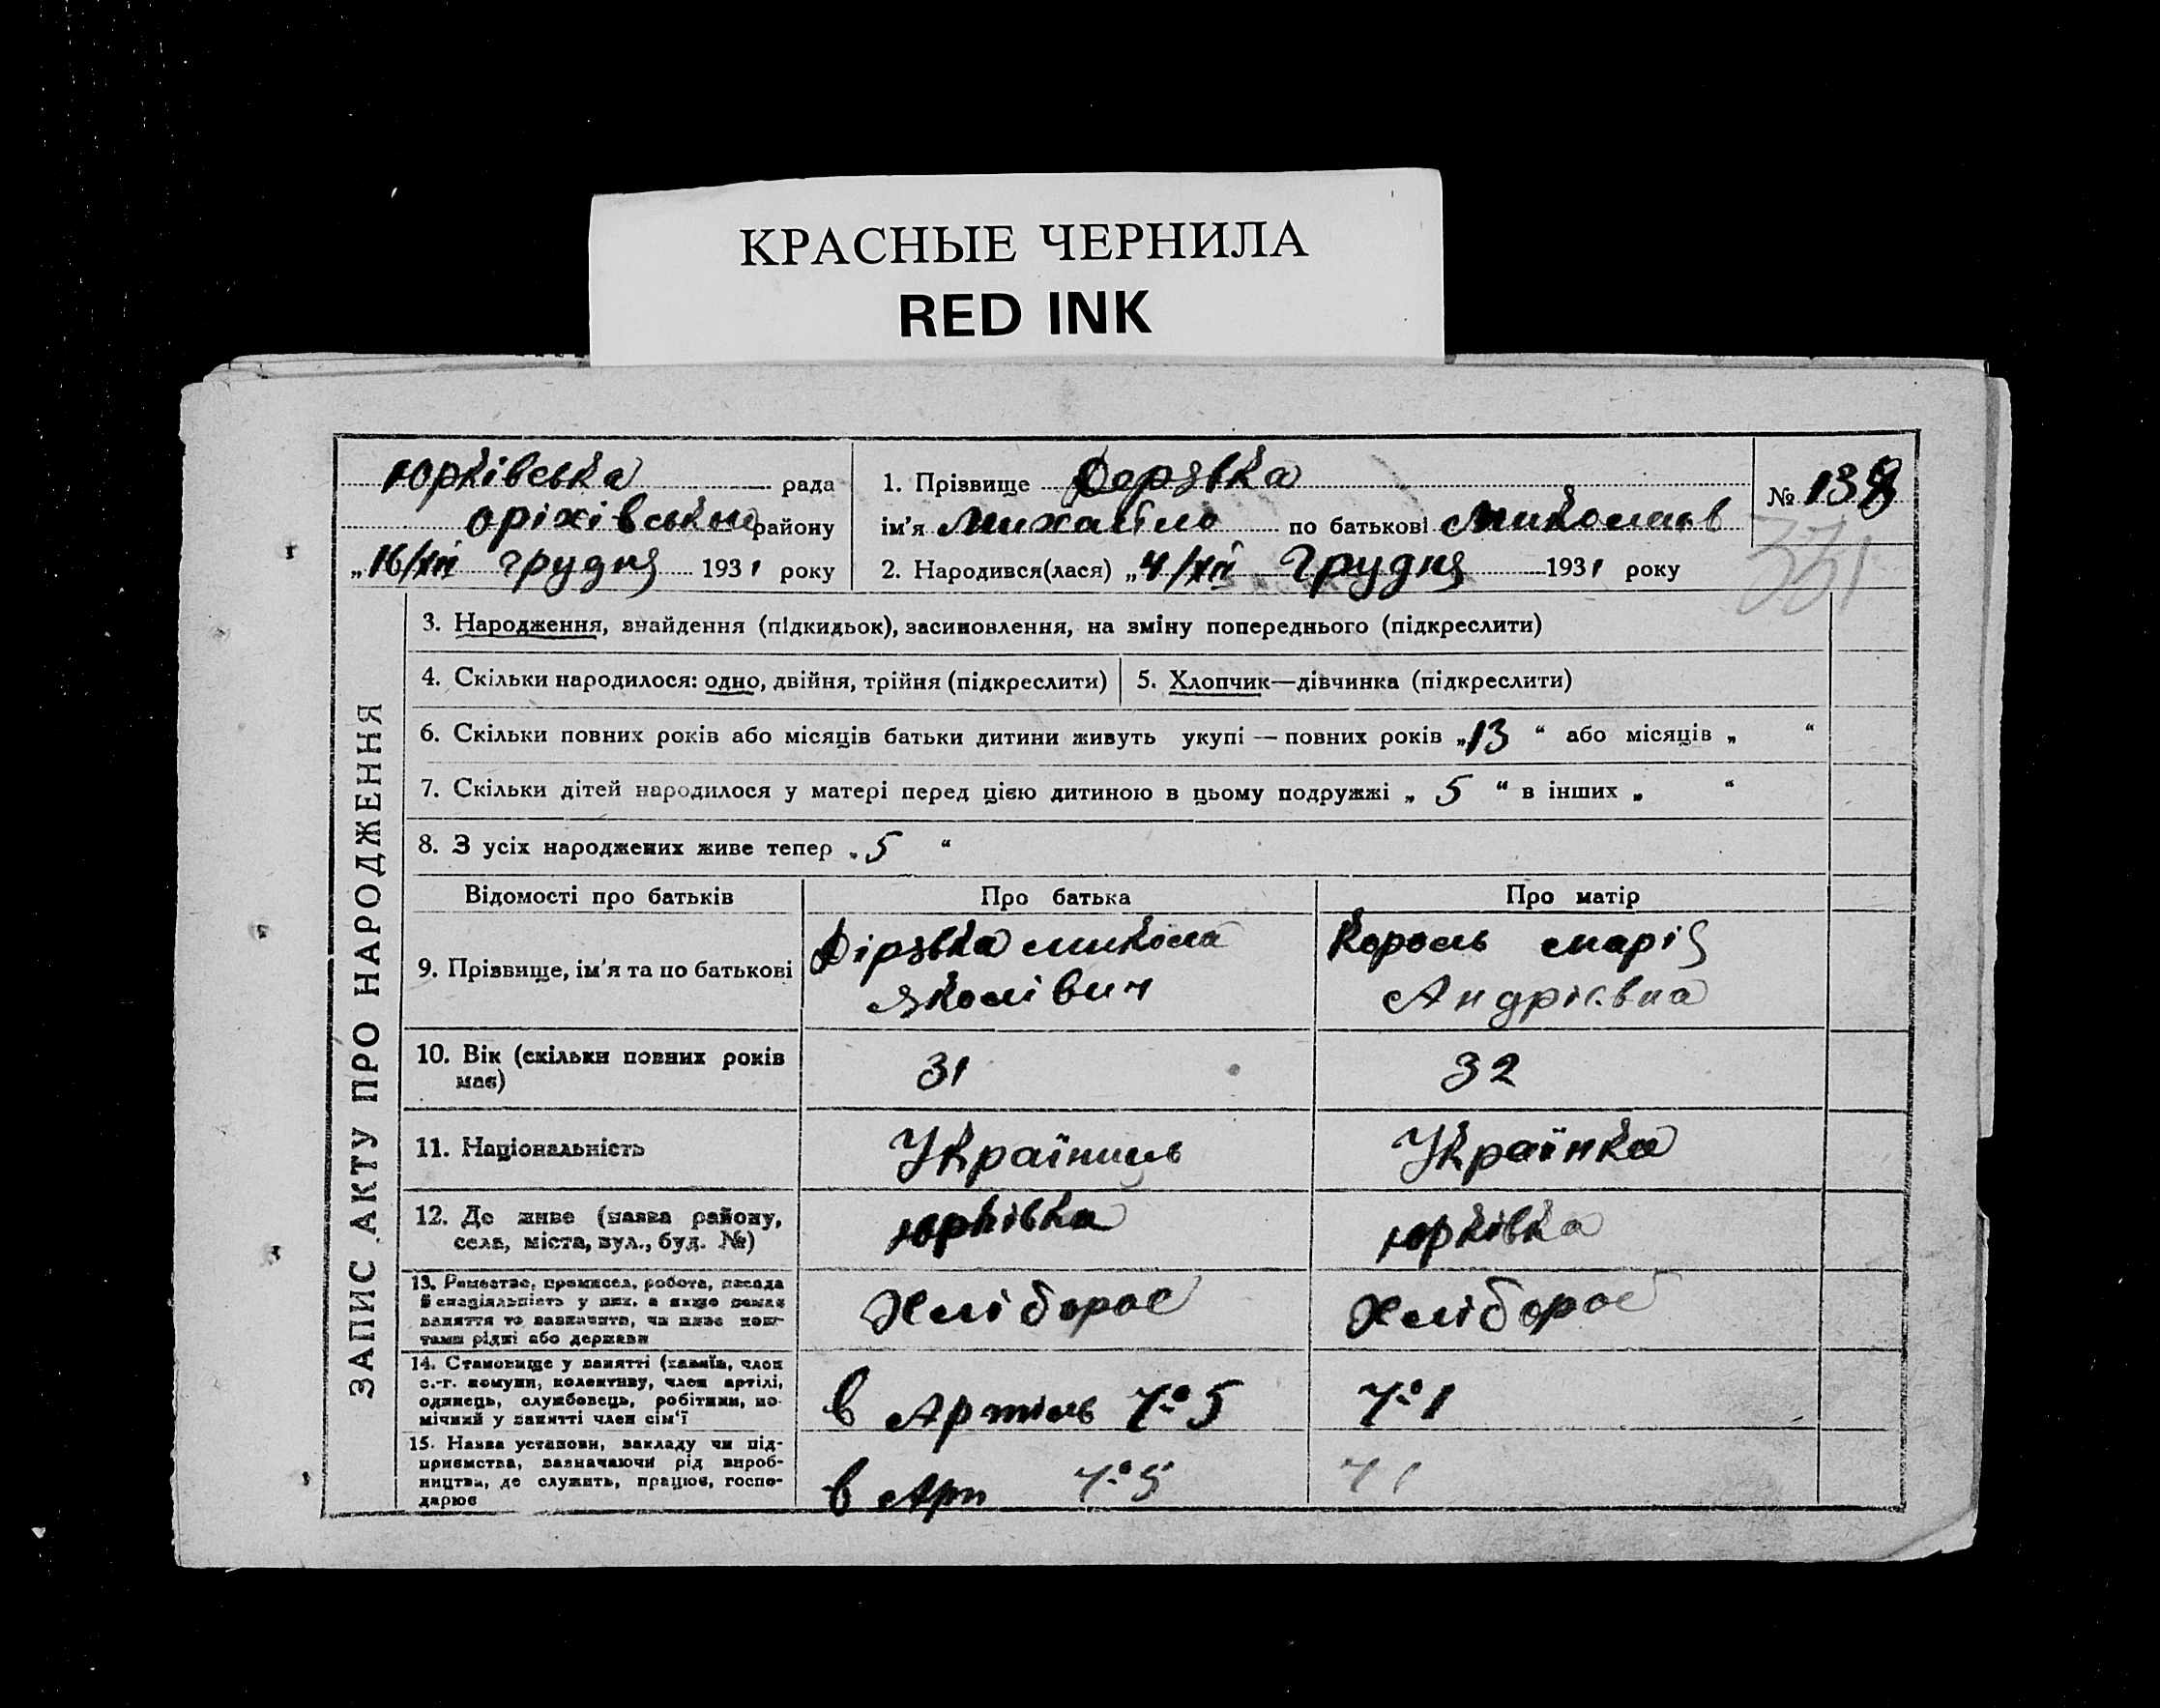 КРАСНЫЕ ЧЕРНИЛА
RED INK
Юрківська рада
Оріхівського району
„16/XII грудня 1931 року
1. Прізвище Дерявка
ім’я Михайло по батькові Миколаєв
2. Народився(лася) „4/XII Грудня 1931 року
№ 138
331
ЗАПИС АКТУ ПРО НАРОДЖЕННЯ
3. Народження, знайдення (підкидьок), засиновлення, на зміну попереднього (підкреслити)
4. Скільки народилося: одно, двійня, трійня (підкреслити)
5. Хлопчик—дівчинка (підкреслити)
6. Скільки повних років або місяців батьки дитини живуть укупі — повних років „13“ або місяців „ “
7. Скільки дітей народилося у матері перед цією дитиною в цьому подружжі „ 5 “ в інших „ “
8. З усіх народжених живе тепер „ 5 “
Відомості про батьків Про батька Про матір
9. Прізвище, ім’я та по батькові
Дірявка Микола
Яколівич
Король Марія
Андрієвна
10. Вік (скільки повних років
має)
31 32
11. Національність Україниць Українка
12. Де живе (назва району,
села, міста, вул., буд. №)
Юрківка Юрківка
13. Ремество, промисел, робота, посада
й спеціяльність у них, а якщо немає
заняття то зазначити, чи живе кош-
тами рідні або держави
Хлібороб Хлібороб
14. Становище у занятті (хазяїн, член
с.-г. комуни, колективу, член артілі,
одинець, службовець, робітник, по-
мічний у занятті член сім’ї
в Артіль Ч-о 5 Ч-о 1
15. Назва установи, закладу чи під-
приємства, зазначаючи рід вироб-
ництва, де служить, працює, госпо-
дарює
в Арт Ч-о 5 Ч 1